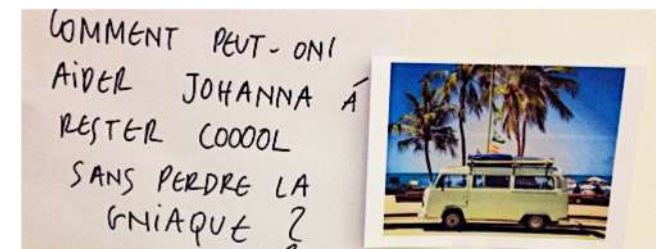 COMMENT PEUT-ON
AIDER JOHANNA À
RESTER COOOOL
SANS PERDRE LA
GNIAQUE ?